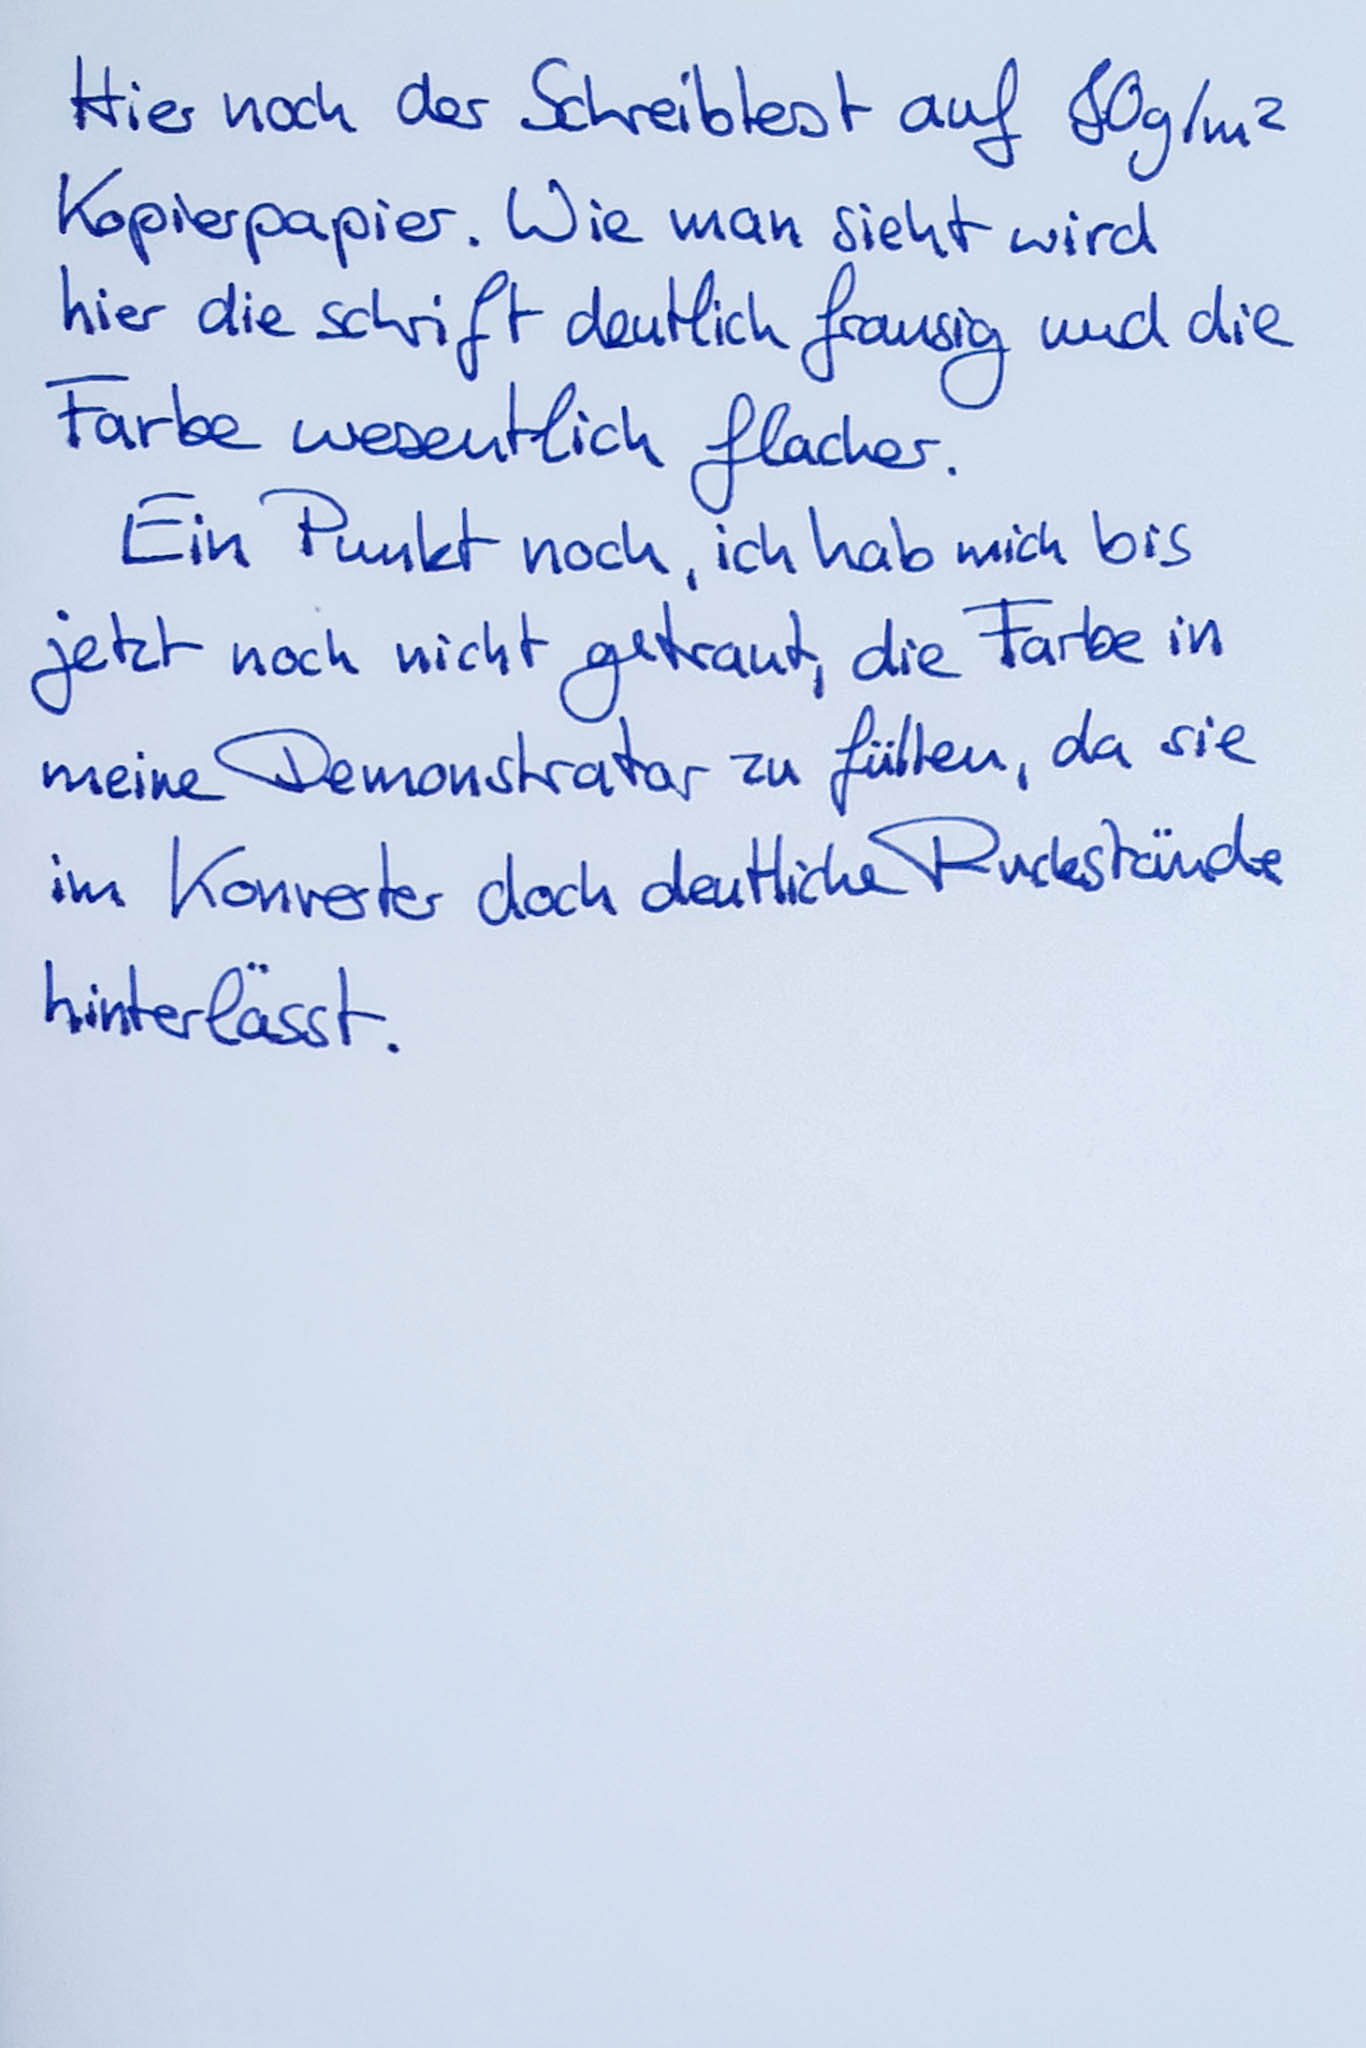 Hier noch der Schreibtest auf 80g/m²
Kopierpapier. Wie man sieht wird
hier die schrift deutlich frausig und die
Farbe wesentlich flacher.
Ein Punkt noch, ich hab mich bis
jetzt noch nicht getraut, die Farbe in
meine Demonstrator zu füllen, da sie
im Konverter doch deutliche Ruckstände
hinterlässt.